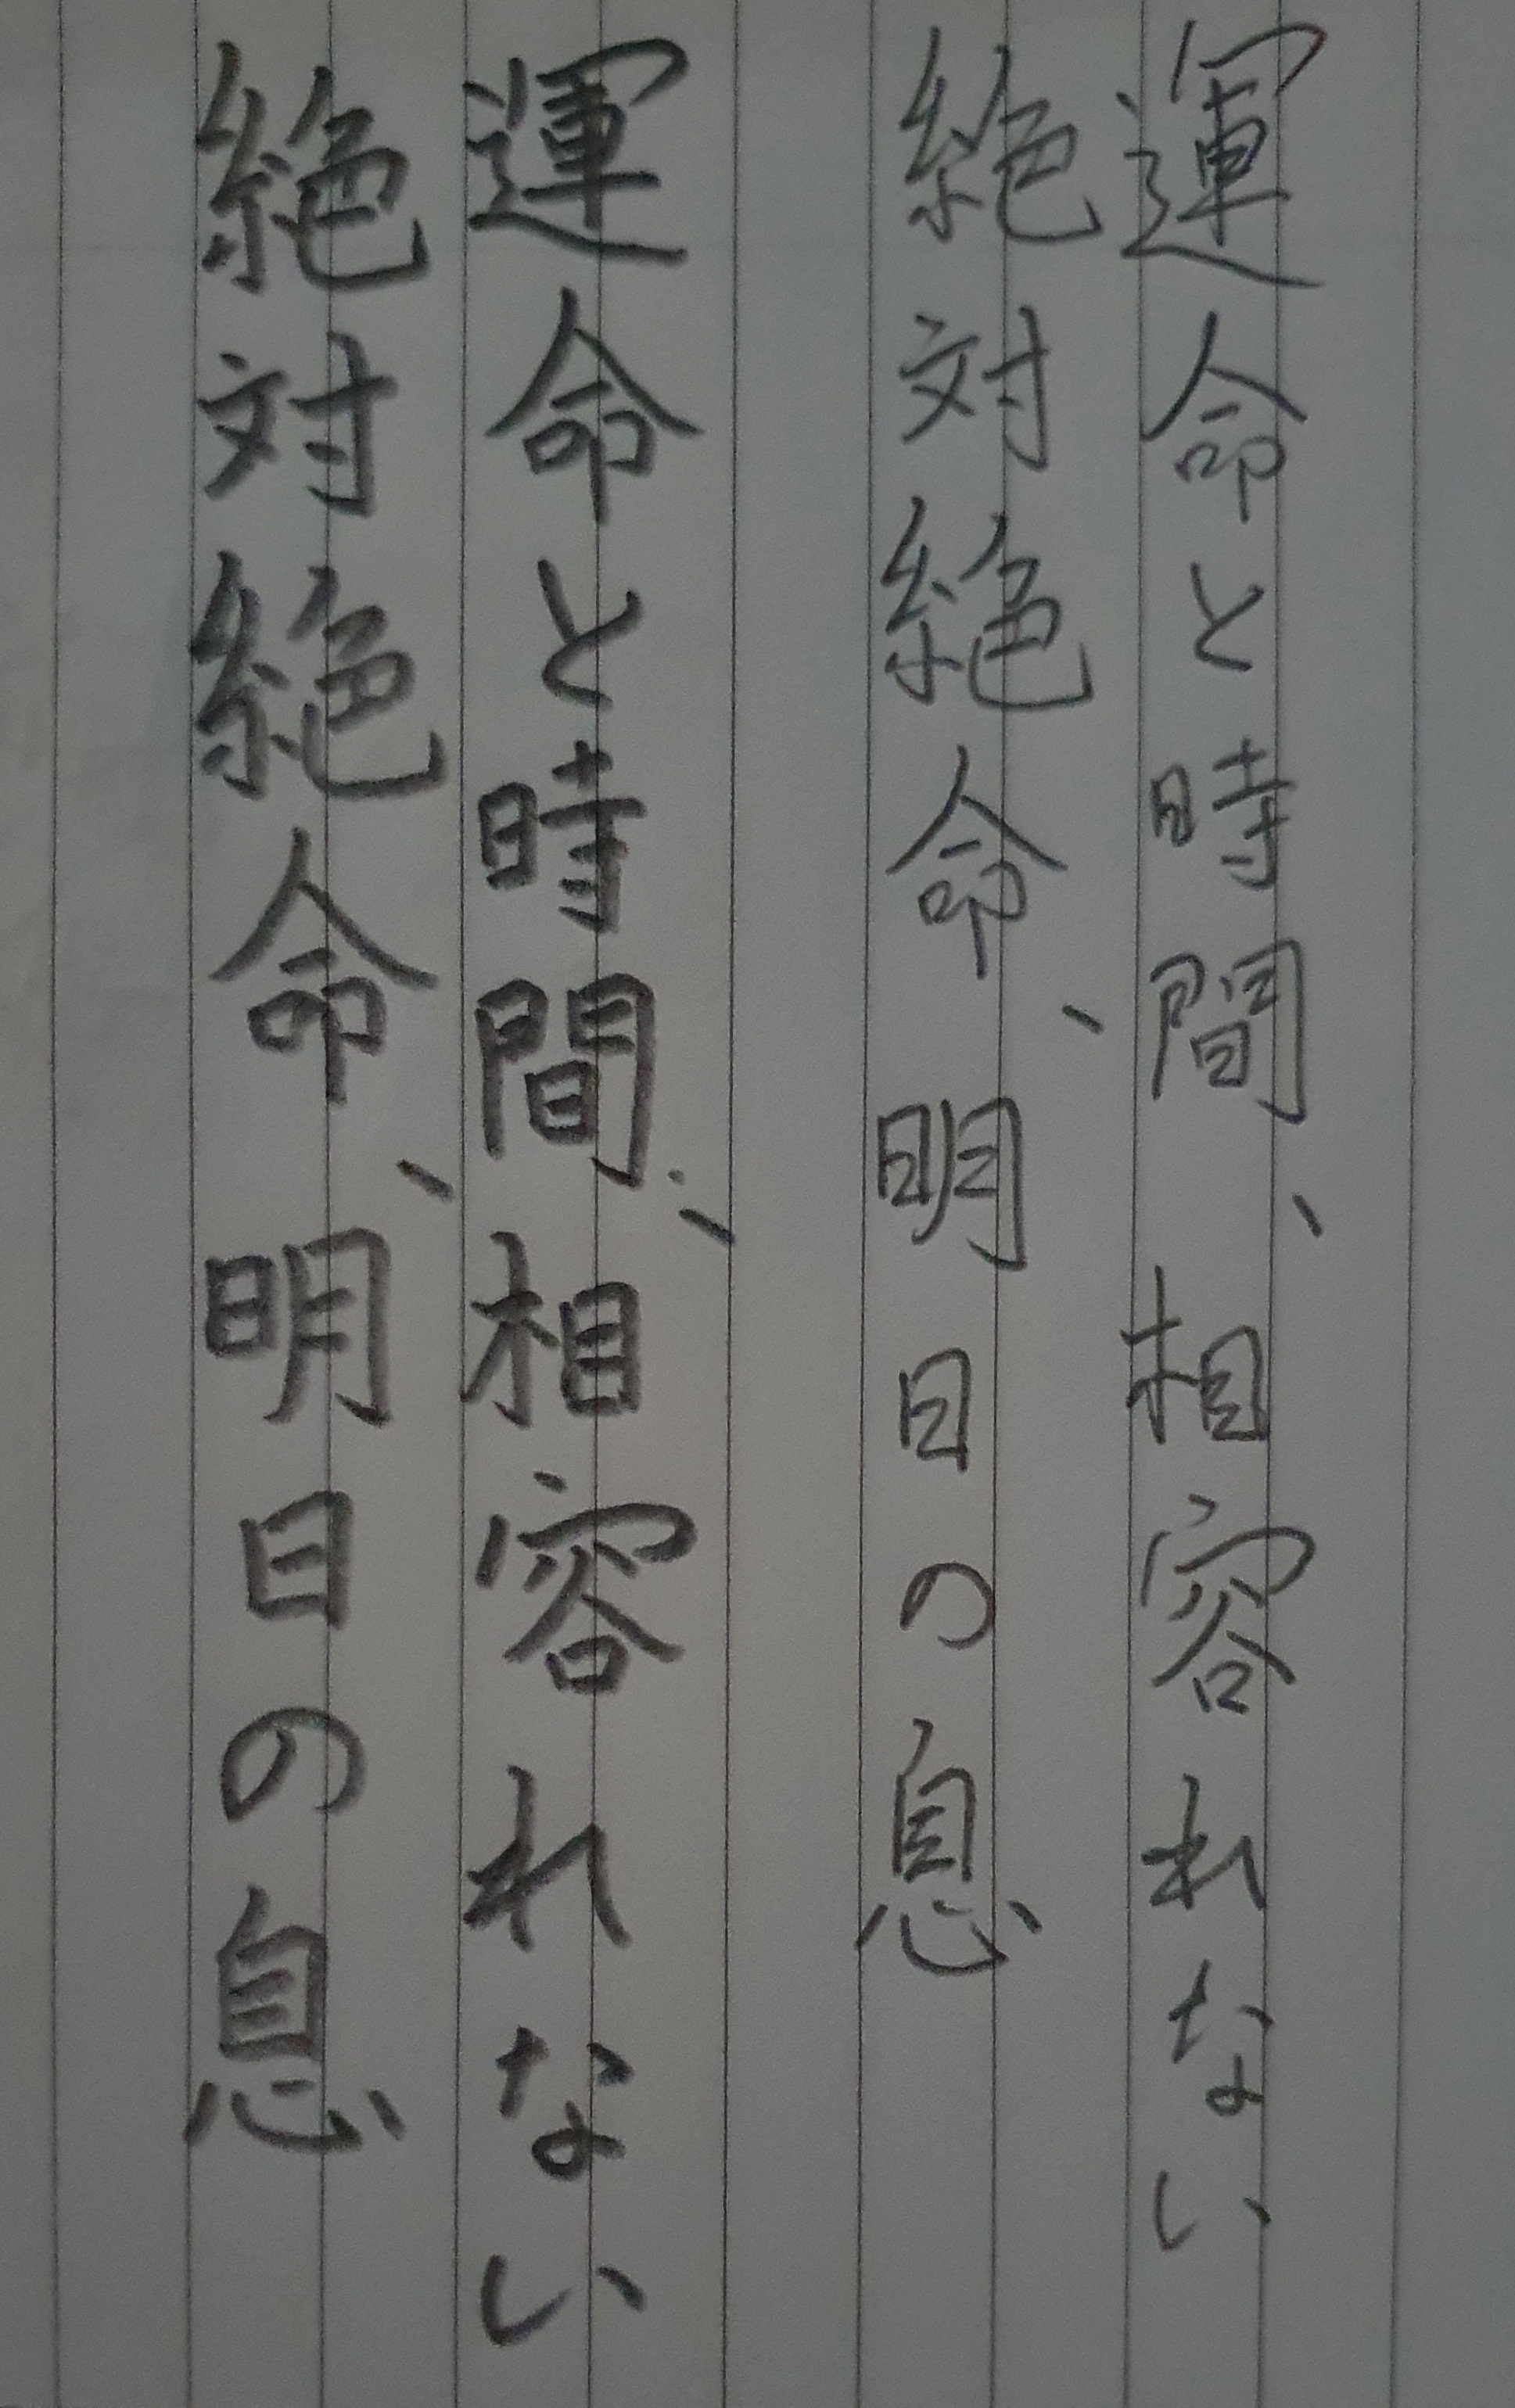 運命と時間、相容れない
絶対絶命、明日の息
運命と時間、相容れない
絶対絶命、明日の息